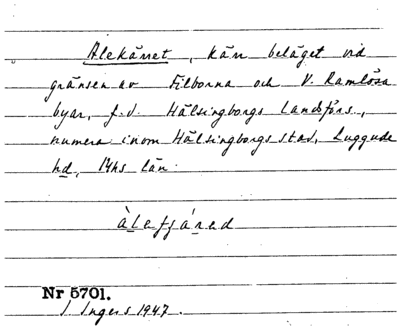 Alekärret, kärr beläget vid
gränsen av Filborna och V. Ramlösa
byar, f.d. Hälsingborgs Landsförs.,
numera inom Hälsingborgs stad, Luggude
hd, Mhs län.
Nr 5701.
I. Ingers 1947.